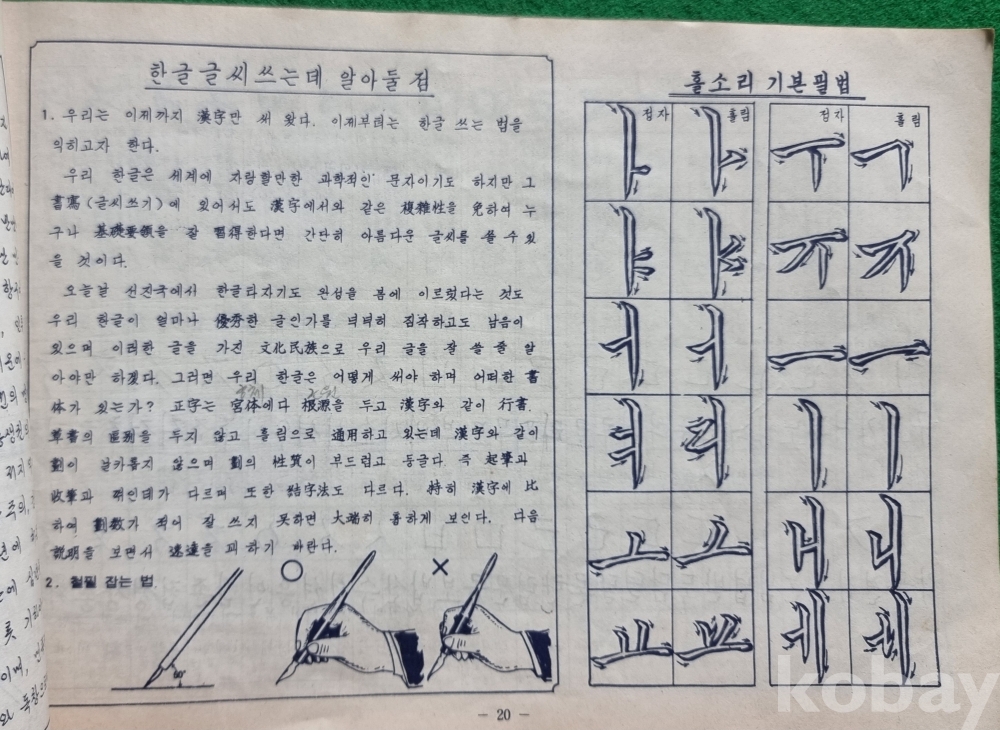 한글글씨쓰는데 알아둘점
1. 우리는 이제까지 漢字만 써 왔다. 이제부터는 한글 쓰는 법을
익히고자 한다.
우리 한글은 세계에 자랑할만한 과학적인 문자이기도 하지만 그
書寫(글씨쓰기)에 있어서도 漢字에서와 같은 複雜性을 免하여 누
구나 基礎要領을 잘 習得한다면 간단히 아름다운 글씨를 쓸 수 있
을 것이다.
오늘날 선진국에서 한글타자기도 완성을 봄에 이르렀다는 것도
우리 한글이 얼마나 優秀한 글인가를 넉넉히 짐작하고도 남음이
있으며 이러한 글을 가진 文化民族으로 우리 글을 잘 쓸 줄 알
아야만 하겠다. 그러면 우리 한글은 어떻게 써야 하며 어떠한 書
体가 있는가? 正字는 宮体에다 根源을 두고 漢字와 같이 行書.
草書의 區別을 두지 않고 흘림으로 通用하고 있는데 漢字와 같이
劃이 날카롭지 않으며 劃의 性質이 부드럽고 둥글다. 즉 起筆과
收筆과 꺾인데가 다르며 또한 結字法도 다르다. 特히 漢字에 比
하여 劃數가 적어 잘 쓰지 못하면 大端히 흉하게 보인다. 다음
說明을 보면서 速達을 꾀하기 바란다.
2. 철필 잡는 법.
60°
홀소리 기본필법
정자 흘림 정자 흘림
ㅏ ㅏ ㅜ ㅜ
ㅑ ㅑ ㅠ ㅠ
ㅓ ㅓ ㅡ ㅡ
ㅕ ㅕ ㅣ ㅣ
ㅗ ㅗ ㅐ ㅐ
ㅛ ㅛ ㅔ ㅔ
- 20 -
kobay